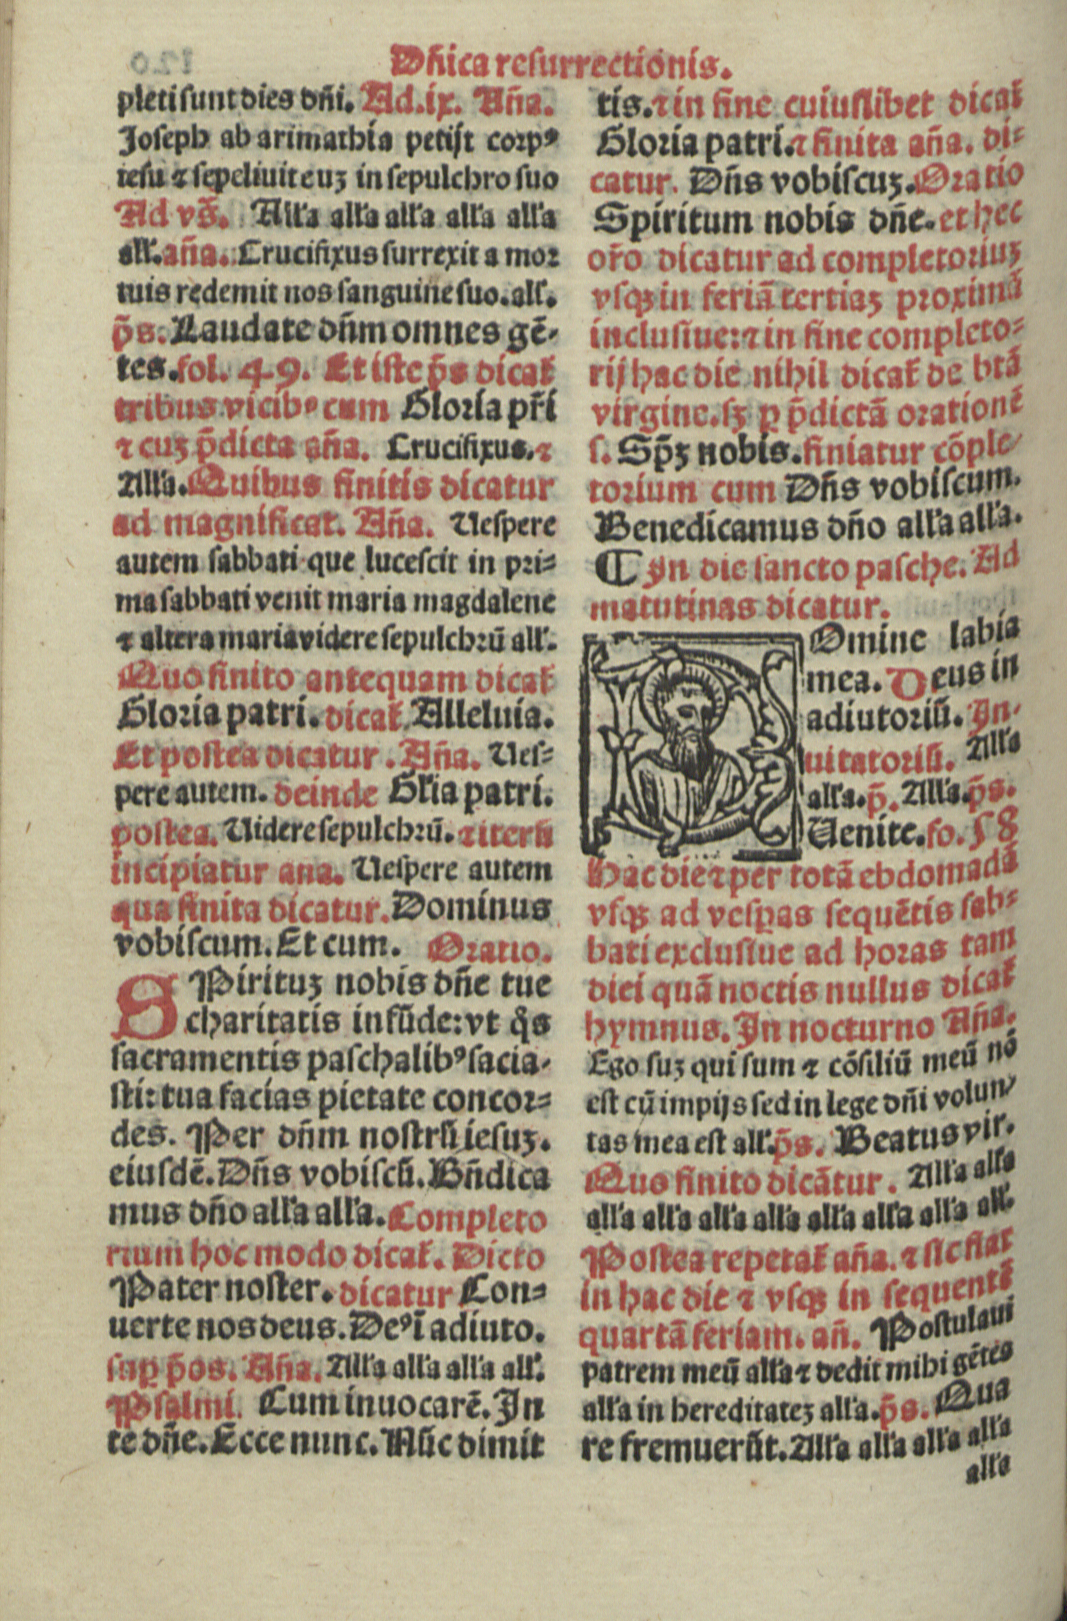 Dñica resurrectionis.
pleti sunt dies dñi. Ad.ix. Aña.
Joseph ab arimathia petijt corpꝰ
iesu ⁊ sepeliuit euꝫ in sepulchro suo
Ad vs̄. All'a all'a all'a all'a all'a
all'. aña. Crucifixus surrexit a mor
tuis redemit nos sanguine suo. all'.
p̄s. Laudate dñm omnes gē-
tes. fol. 49. Et iste p̄s dicať
tribus vicibꝰ cum Gloria p̄ri
⁊ cuꝫ p̄dicta aña. Crucifixus. ⁊
All'a. Quibus finitis dicatur
ad magnificat. Aña. Uespere
autem sabbati que lucescit in pri=
ma sabbati venit maria magdalene
⁊ altera maria videre sepulchrū all'.
Quo finito antequam dicať
Gloria patri. dicať Alleluia.
Et postea dicatur. Aña. Ues=
pere autem. deinde Gl'ia patri.
postea. Uidere sepulchrū. ⁊ iterū
incipiatur ana. Uespere autem
qua finita dicatur. Dominus
vobiscum. Et cum. Oratio.
SPirituꝫ nobis dñe tue
charitatis infūde: vt q̄s
sacramentis paschalibꝰ sacia-
sti: tua facias pietate concor=
des. Per dñm nostrū iesuꝫ.
eiusdē. Dñs vobiscū. Bñdica
mus dño all'a all'a. Completo
rium hoc modo dicať. Dicto
Pater noster. dicatur Con=
uerte nos deus. Deꝰ ī adiuto.
suꝑ p̄os. Aña. All'a all'a all'a all'.
Psalmi. Cum inuocarē. In
te dñe. Ecce nunc. Nūc dimit
tis. ⁊ in fine cuiuslibet dicať
Gloria patri. ⁊ finita aña. di=
catur. Dñs vobiscuꝫ. Oratio
Spiritum nobis dñe. et hec
or̄o dicatur ad completoriuꝫ
vsqꝫ in feriā tertiaꝫ proximā
inclusiue: ⁊ in fine completo=
rij hac die nihil dicať de btā
virgine. sꝫ ꝑ p̄dictā orationē
s. Sp̄ꝫ nobis. finiatur cōple
torium cum Dñs vobiscum.
Benedicamus dño all'a all'a.
¶ In die sancto pasche. Ad
matutinas dicatur.
DOmine labia
mea. Deus in
adiutoriū. In-
uitatoriū. All'a
all'a. p̄. All'a. p̄s.
Uenite. fo. 58
hac die ⁊ per totā ebdomadā
vsqꝫ ad vesꝑas sequētis sab=
bati exclusiue ad horas tam
diei quā noctis nullus dicať
hymnus. In nocturno Aña.
Ego suꝫ qui sum ⁊ cōsiliū meū nō
est cū impijs sed in lege dñi volun
tas mea est all'. p̄s. Beatus vir.
Quo finito dicātur. All'a all'a
all'a all'a all'a all'a all'a all'a all'a all'.
Postea repetať aña. ⁊ sic fiat
in hac die ⁊ vsqꝫ in sequentē
quartā feriam. añ. Postulaui
patrem meū all'a ⁊ dedit mihi gētes
all'a in hereditateꝫ all'a. p̄s. Qua
re fremuerūt. All'a all'a all'a all'a
all'a